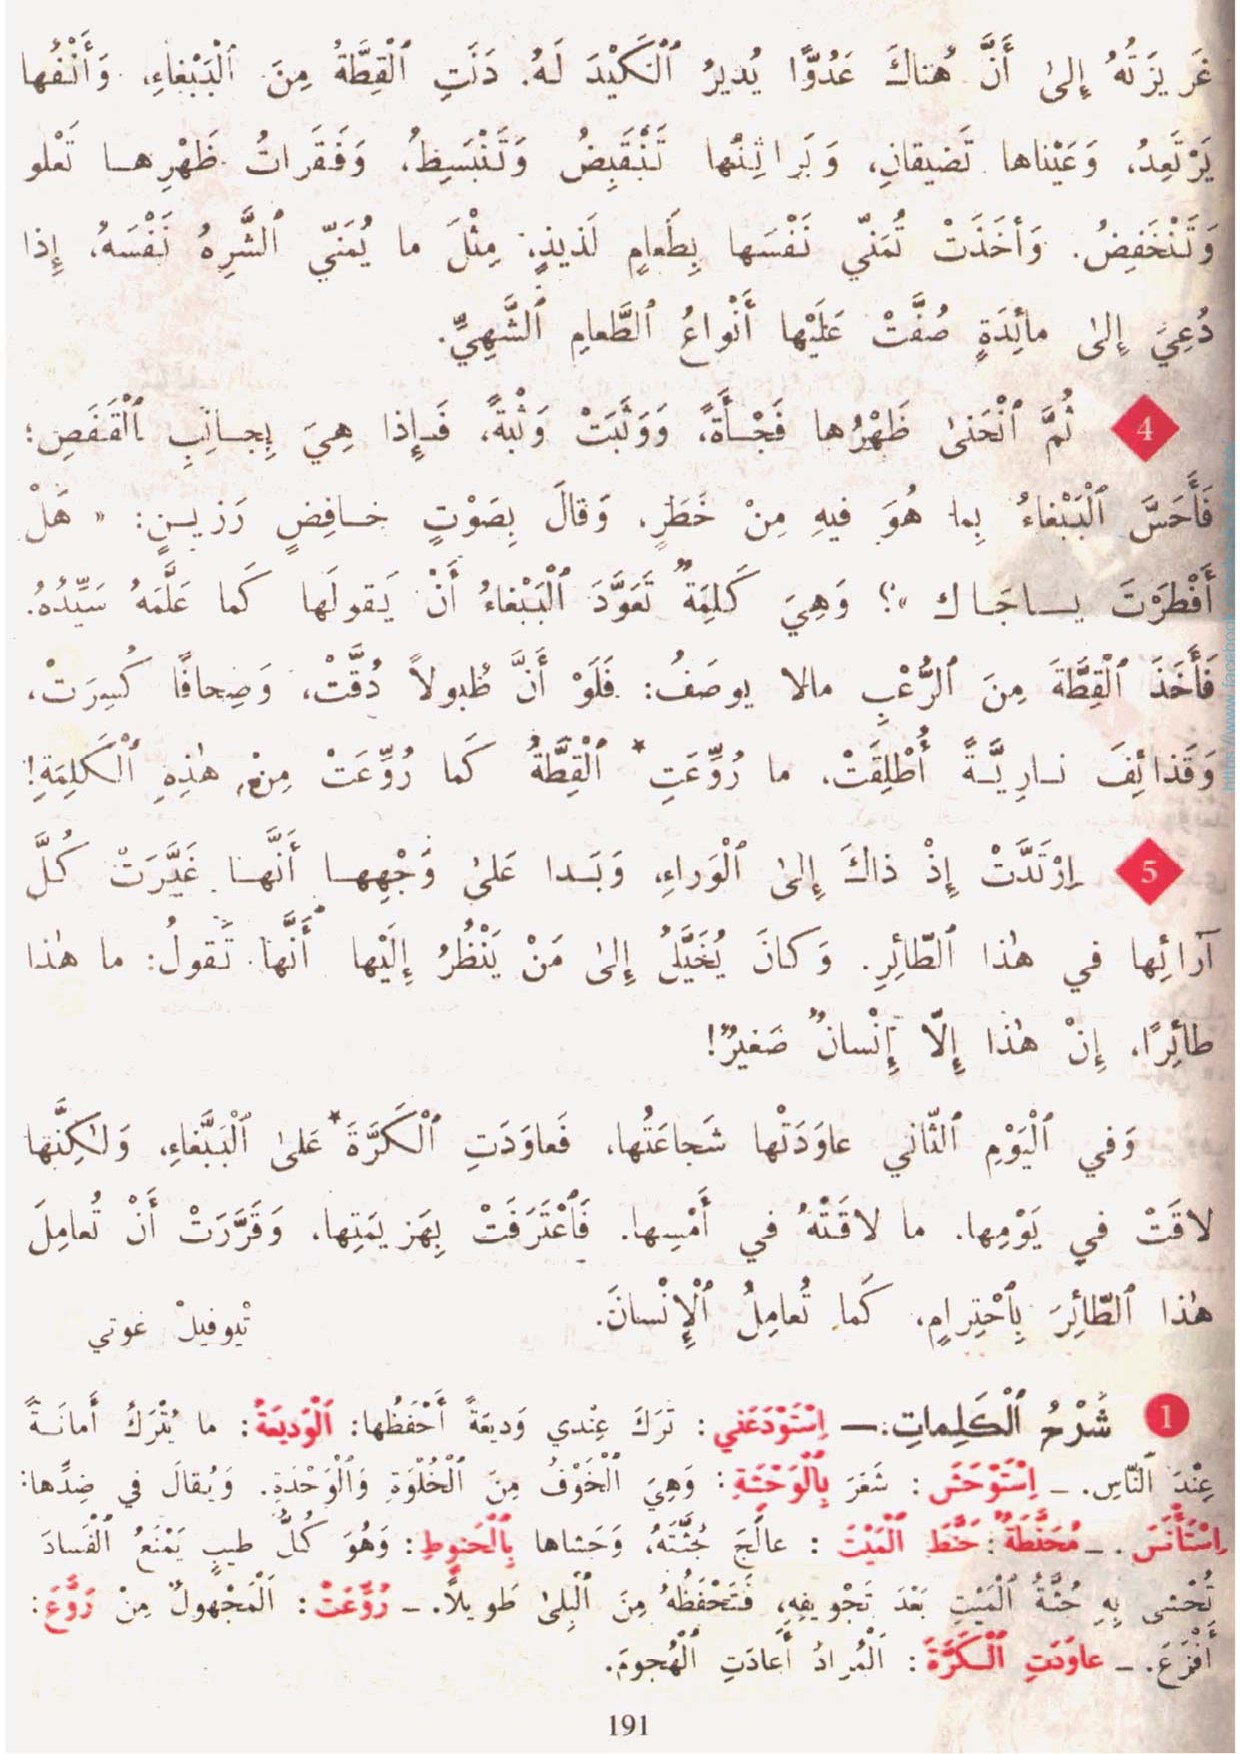 غَريزَتُهُ إِلىٰ أَنَّ هُناكَ عَدُوًّا يُديرُ ٱلْكَيْدَ لَهُ. دَنَتِ ٱلْقِطَّةُ مِنَ ٱلْبَبْغاءِ، وَأَنْفُها
يَرْتَعِدُ، وَعَيْناها تَضيقانِ، وَبَراثِنُها تَنْقَبِضُ وَتَنْبَسِطُ، وَفَقَراتُ ظَهْرِها تَعْلو
وَتَنْخَفِضُ. وَأَخَذَتْ تُمَنّي نَفْسَها بِطَعامٍ لَذيذٍ، مِثْلَ ما يُمَنّي ٱلشَّرِهُ نَفْسَهُ، إِذا
دُعِيَ إِلىٰ مائِدَةٍ صُفَّتْ عَلَيْها أَنْواعُ ٱلطَّعامِ ٱلشَّهِيِّ.
4 ثُمَّ ٱنْحَنىٰ ظَهْرُها فَجْأَةً، وَوَثَبَتْ وَثْبَةً، فَإِذا هِيَ بِجانِبِ ٱلْقَفَصِ؛
فَأَحَسَّ ٱلْبَبْغاءُ بِما هُوَ فيهِ مِنْ خَطَرٍ، وَقالَ بِصَوْتٍ خافِضٍ رَزينٍ: « هَلْ
أَفْطَرْتَ ياجَاك »؟ وَهِيَ كَلِمَةٌ تَعَوَّدَ ٱلْبَبْغاءُ أَنْ يَقولَها كَما عَلَّمَهُ سَيِّدُهُ.
فَأَخَذَ ٱلْقِطَّةَ مِنَ ٱلرُّعْبِ مالا يوصَفُ: فَلَوْ أَنَّ طُبولاً دُقَّتْ، وَصِحافًا كُسِرَتْ،
وَقَذائِفَ نارِيَّةً أُطْلِقَتْ، ما رُوِّعَتِ* ٱلْقِطَّةُ كَما رُوِّعَتْ مِنْ هٰذِهِ ٱلْكَلِمَةِ!
5 اِرْتَدَّتْ إِذْ ذاكَ إِلىٰ ٱلْوَراءِ، وَبَدا عَلىٰ وَجْهِها أَنَّها غَيَّرَتْ كُلَّ
آرائِها في هٰذا ٱلطّائِرِ. وَكانَ يُخَيَّلُ إِلىٰ مَنْ يَنْظُرُ إِلَيْها أَنَّها تَقولُ: ما هٰذا
طائِرًا، إِنْ هٰذا إِلّا إِنْسانٌ صَغيرٌ!
وَفي ٱلْيَوْمِ ٱلثّاني عاوَدَتْها شَجاعَتُها، فَعاوَدَتِ ٱلْكَرَّةَ* عَلىٰ ٱلْبَبَّغاءِ، وَلٰكِنَّها
لاقَتْ في يَوْمِها. ما لاقَتْهُ في أَمْسِها. فَٱعْتَرَفَتْ بِهَزيمَتِها، وَقَرَّرَتْ أَنْ تُعامِلَ
هٰذا ٱلطّائِرَ بِٱحْتِرامٍ، كَما تُعامِلُ ٱلْإِنْسانَ.
تْيوفيلْ غوتي
1 شَرْحُ ٱلْكَلِماتِ:— اِسْتَوْدَعَني: تَرَكَ عِنْدي وَديعَةً أَحْفَظُها: اَلْوَديعَةُ: ما يُتْرَكُ أَمانَةً
عِنْدَ ٱلنّاسِ. – اِسْتَوْحَشَ: شَعَرَ بِٱلْوَحْشَةِ: وَهِيَ ٱلْخَوْفُ مِنَ ٱلْخُلْوَةِ وَٱلْوَحْدَةِ. وَيُقالَ في ضِدِّها:
اِسْتَأْنَسَ. – مُحَنَّطَةٌ: حَنَّطَ ٱلْمَيْتَ: عالَجَ جُثَّتَهُ، وَحَشاها بِٱلْحَنوطِ: وَهُوَ كُلُّ طيبٍ يَمْنَعُ ٱلْفَسادَ
تُحْشى بِهِ جُثَّةُ ٱلْمَيْتِ بَعْدَ تَجْويفِهِ، فَتَحْفَظُهُ مِنَ ٱلْبِلىٰ طَويلاً. – رُوِّعَتْ: اَلْمَجْهولُ مِنْ رَوَّعَ:
أَفْزَعَ. – عاوَدَتِ ٱلْكَرَّةَ: اَلْمُرادُ أَعادَتِ ٱلْهُجومَ.
191